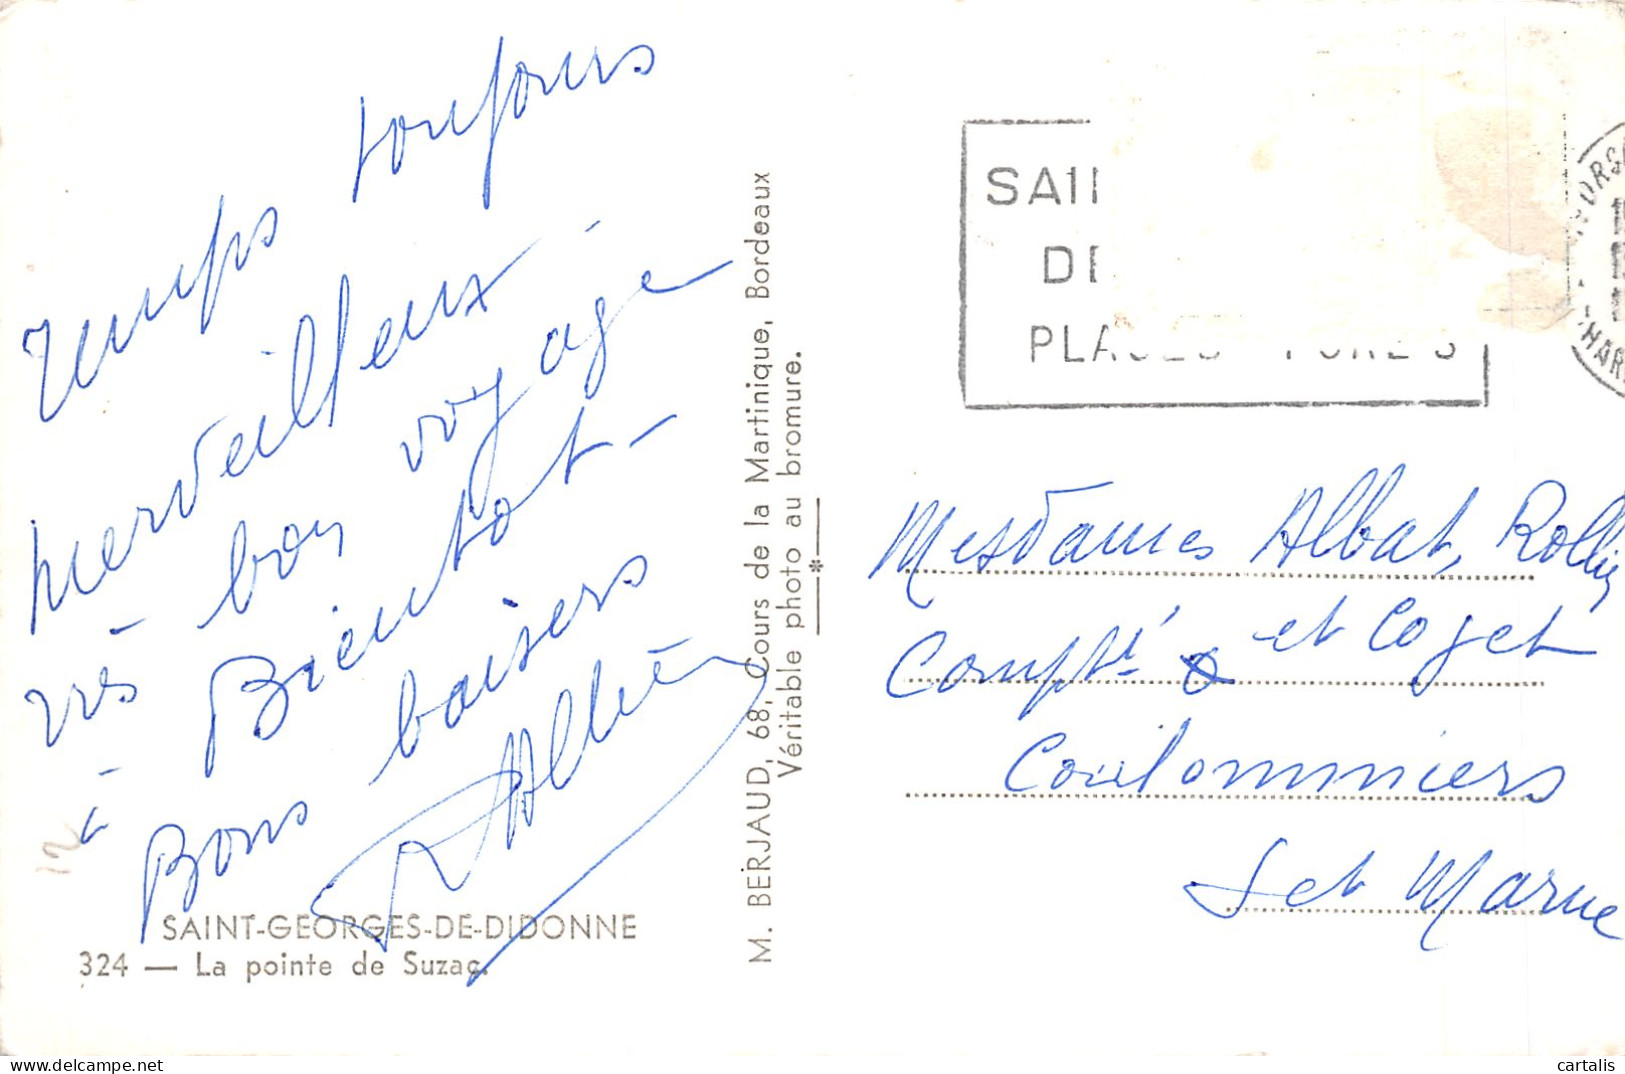 Temps toujours
merveilleux -
très bon voyage
à Bientot -
Bons baisers
SAINT-GEORGES-DE-DIDONNE
324 — La pointe de Suzac.
12
M. BERJAUD, 68, Cours de la Martinique, Bordeaux
Véritable photo au bromure.
SAI
DE
PLAGES FORETS
Mesdames Albat, Rollin
Compté et Coget
Coulommiers
Set Marne
delcampe.net
cartalis